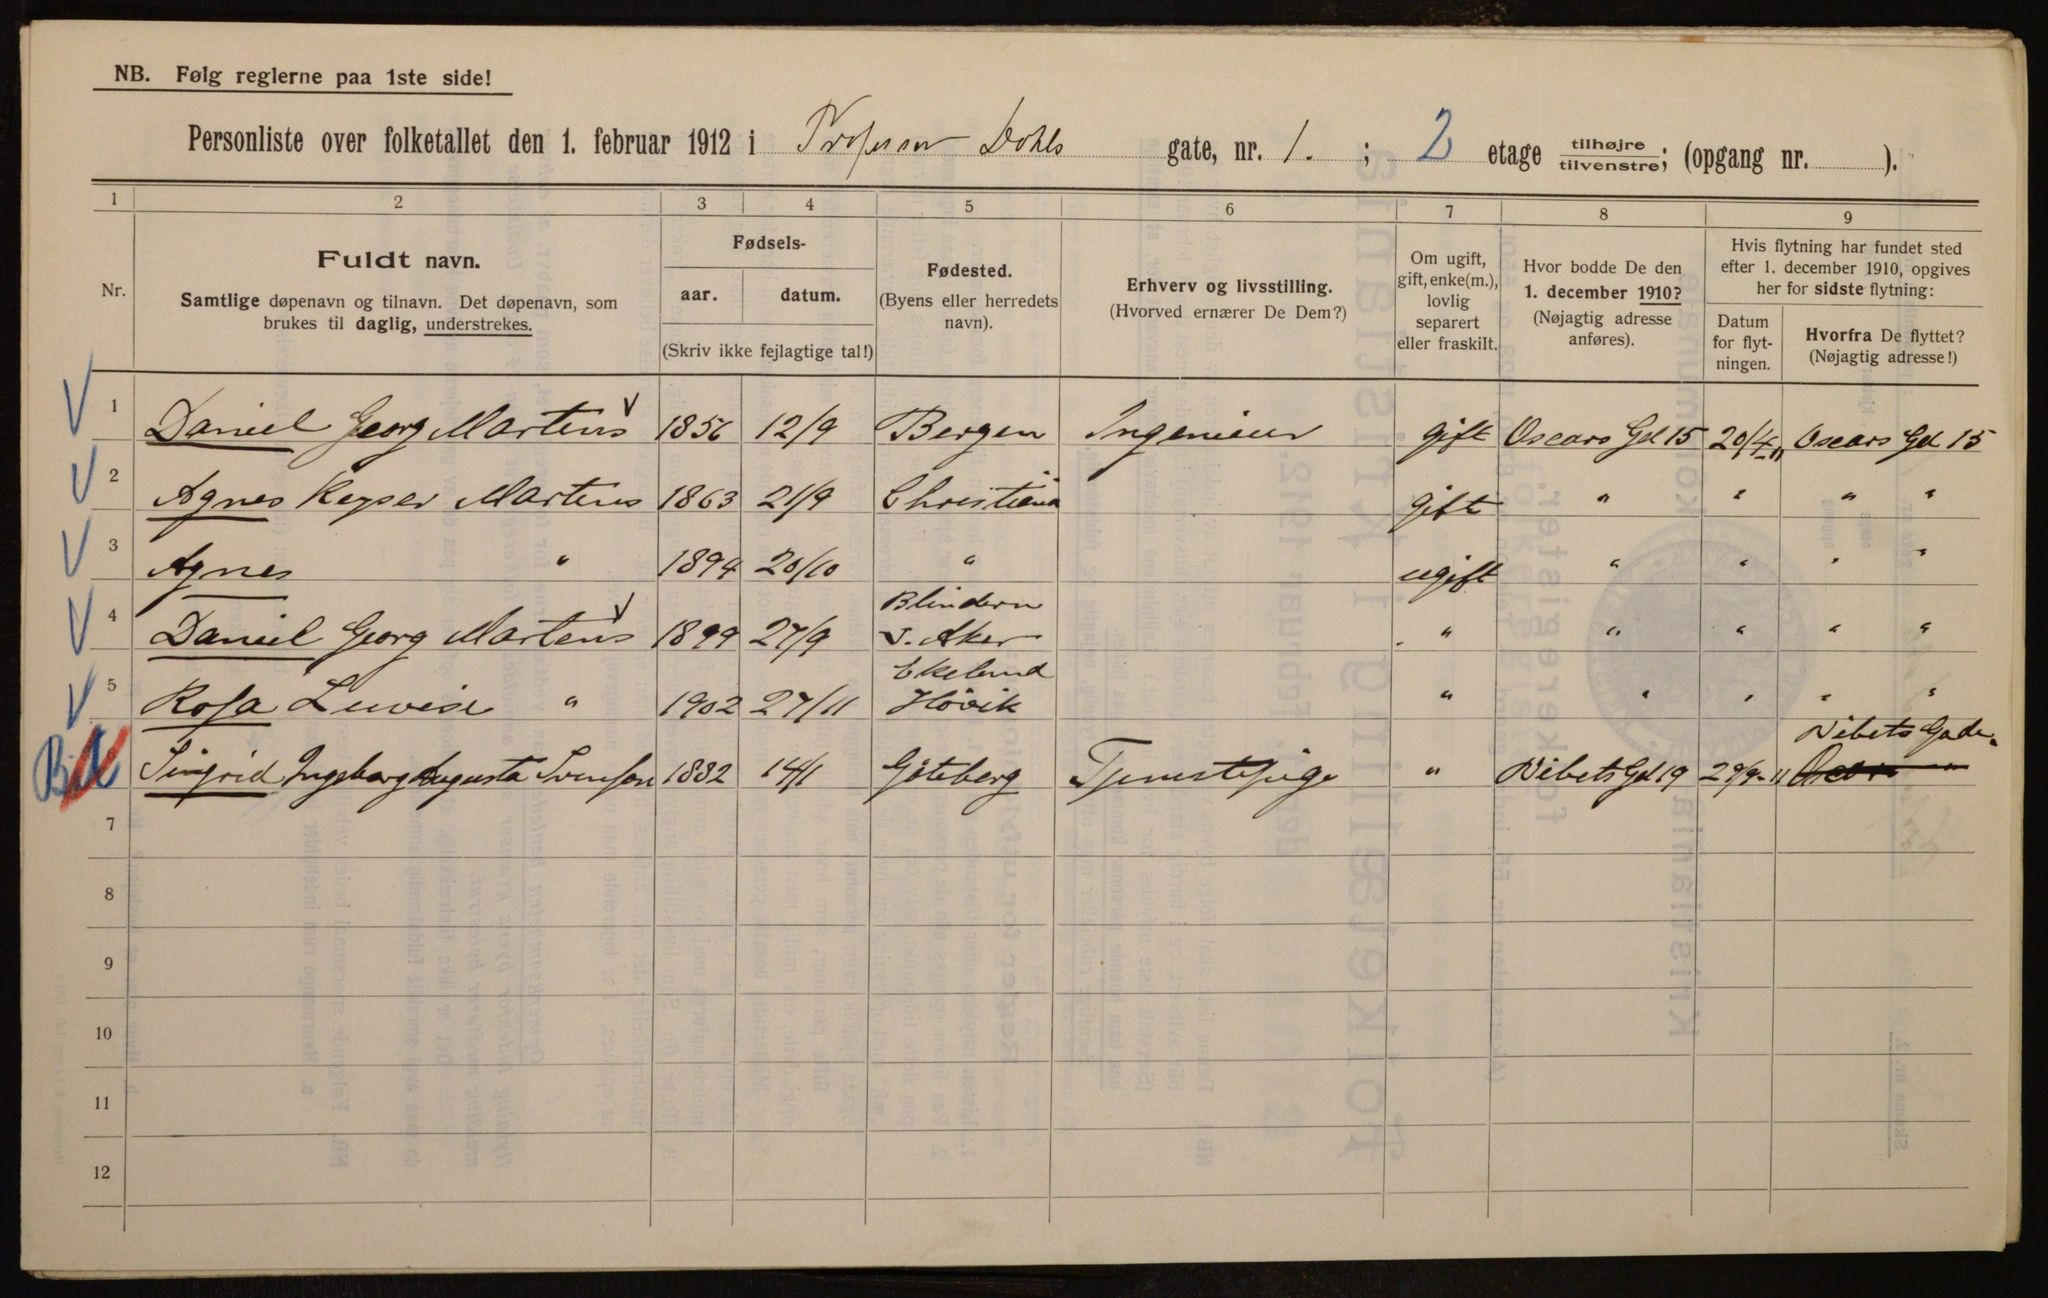 NB. Følg reglerne paa 1ste side!
Personliste over folketallet den 1. februar 1912 i Professor Dahls gate, nr. 1. ; 2 etage tilhøjre/tilvenstre; (opgang nr. ).
1 2 3 4 5 6 7 8 9
Nr.
Fuldt navn.
Samtlige døpenavn og tilnavn. Det døpenavn, som
brukes til daglig, understrekes.
Fødsels-
aar. datum.
(Skriv ikke fejlagtige tal!)
Fødested.
(Byens eller herredets
navn).
Erhverv og livsstilling.
(Hvorved ernærer De Dem?)
Om ugift,
gift, enke(m.),
lovlig
separert
eller fraskilt.
Hvor bodde De den
1. december 1910?
(Nøjagtig adresse
anføres).
Hvis flytning har fundet sted
efter 1. december 1910, opgives
her for sidste flytning:
Datum
for flyt-
ningen.
Hvorfra De flyttet?
(Nøjagtig adresse!)
1 Daniel Georg Martens 1856 12/9 Bergen Ingeniør gift Oscars Gd 15 20/4 11 Oscars Gd 15
2 Agnes Keyser Martens 1863 21/9 Christiania gift " " " "
3 Agnes " 1894 20/10 " ugift " " " "
Blindern
4 Daniel Georg Martens 1899 27/9 v. Aker " " " " "
Ekelund
5 Rosa Lovise " 1902 27/11 Hövik " " " " "
Nibets Gade "
Singrid Ingeborg Augusta Svenson 1882 14/1 Göteberg Tjenestepige " Nibets Gd 19 29/9 11
7
8
9
10
11
12